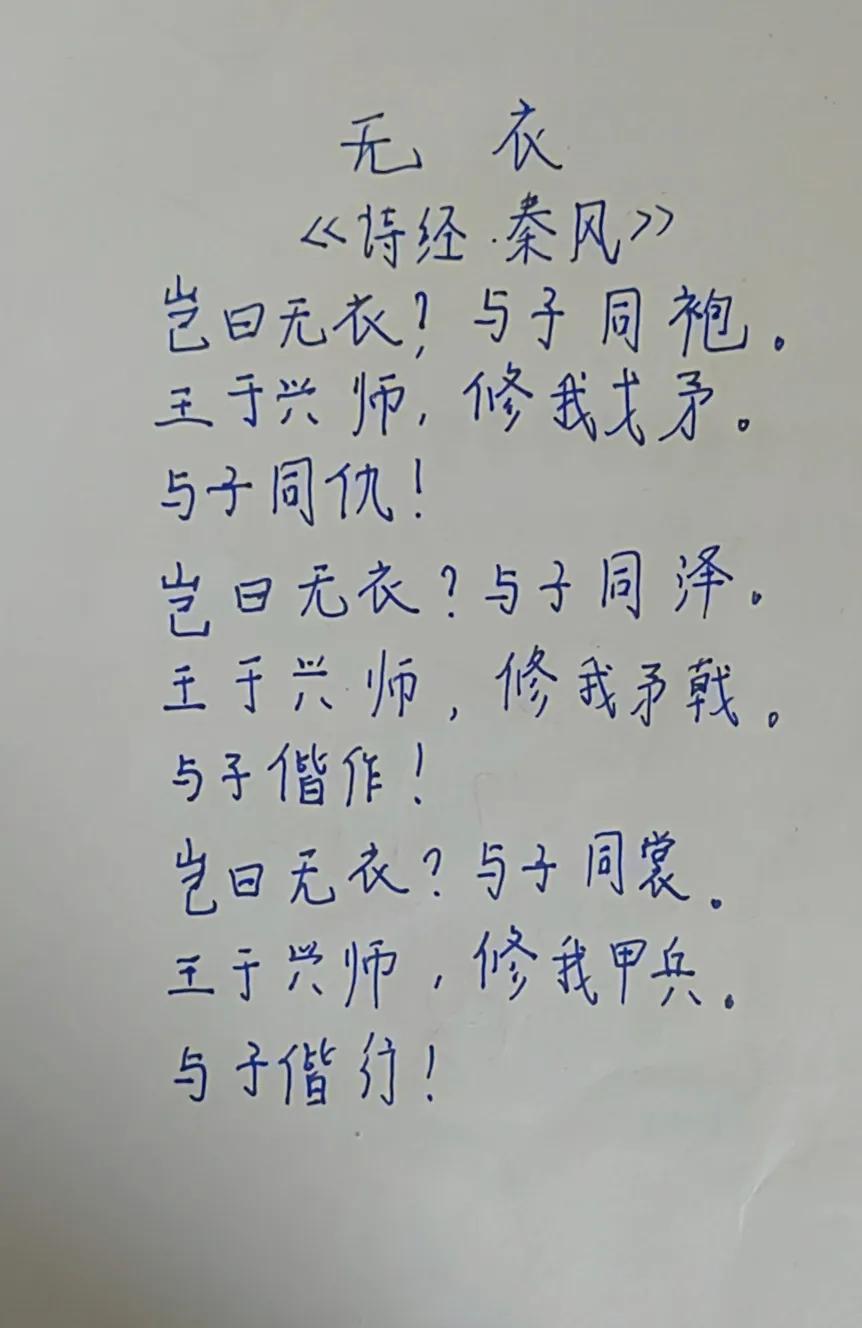 无衣
《诗经·秦风》
岂曰无衣？与子同袍。
王于兴师，修我戈矛。
与子同仇！
岂曰无衣？与子同泽。
王于兴师，修我矛戟。
与子偕作！
岂曰无衣？与子同裳。
王于兴师，修我甲兵。
与子偕行！